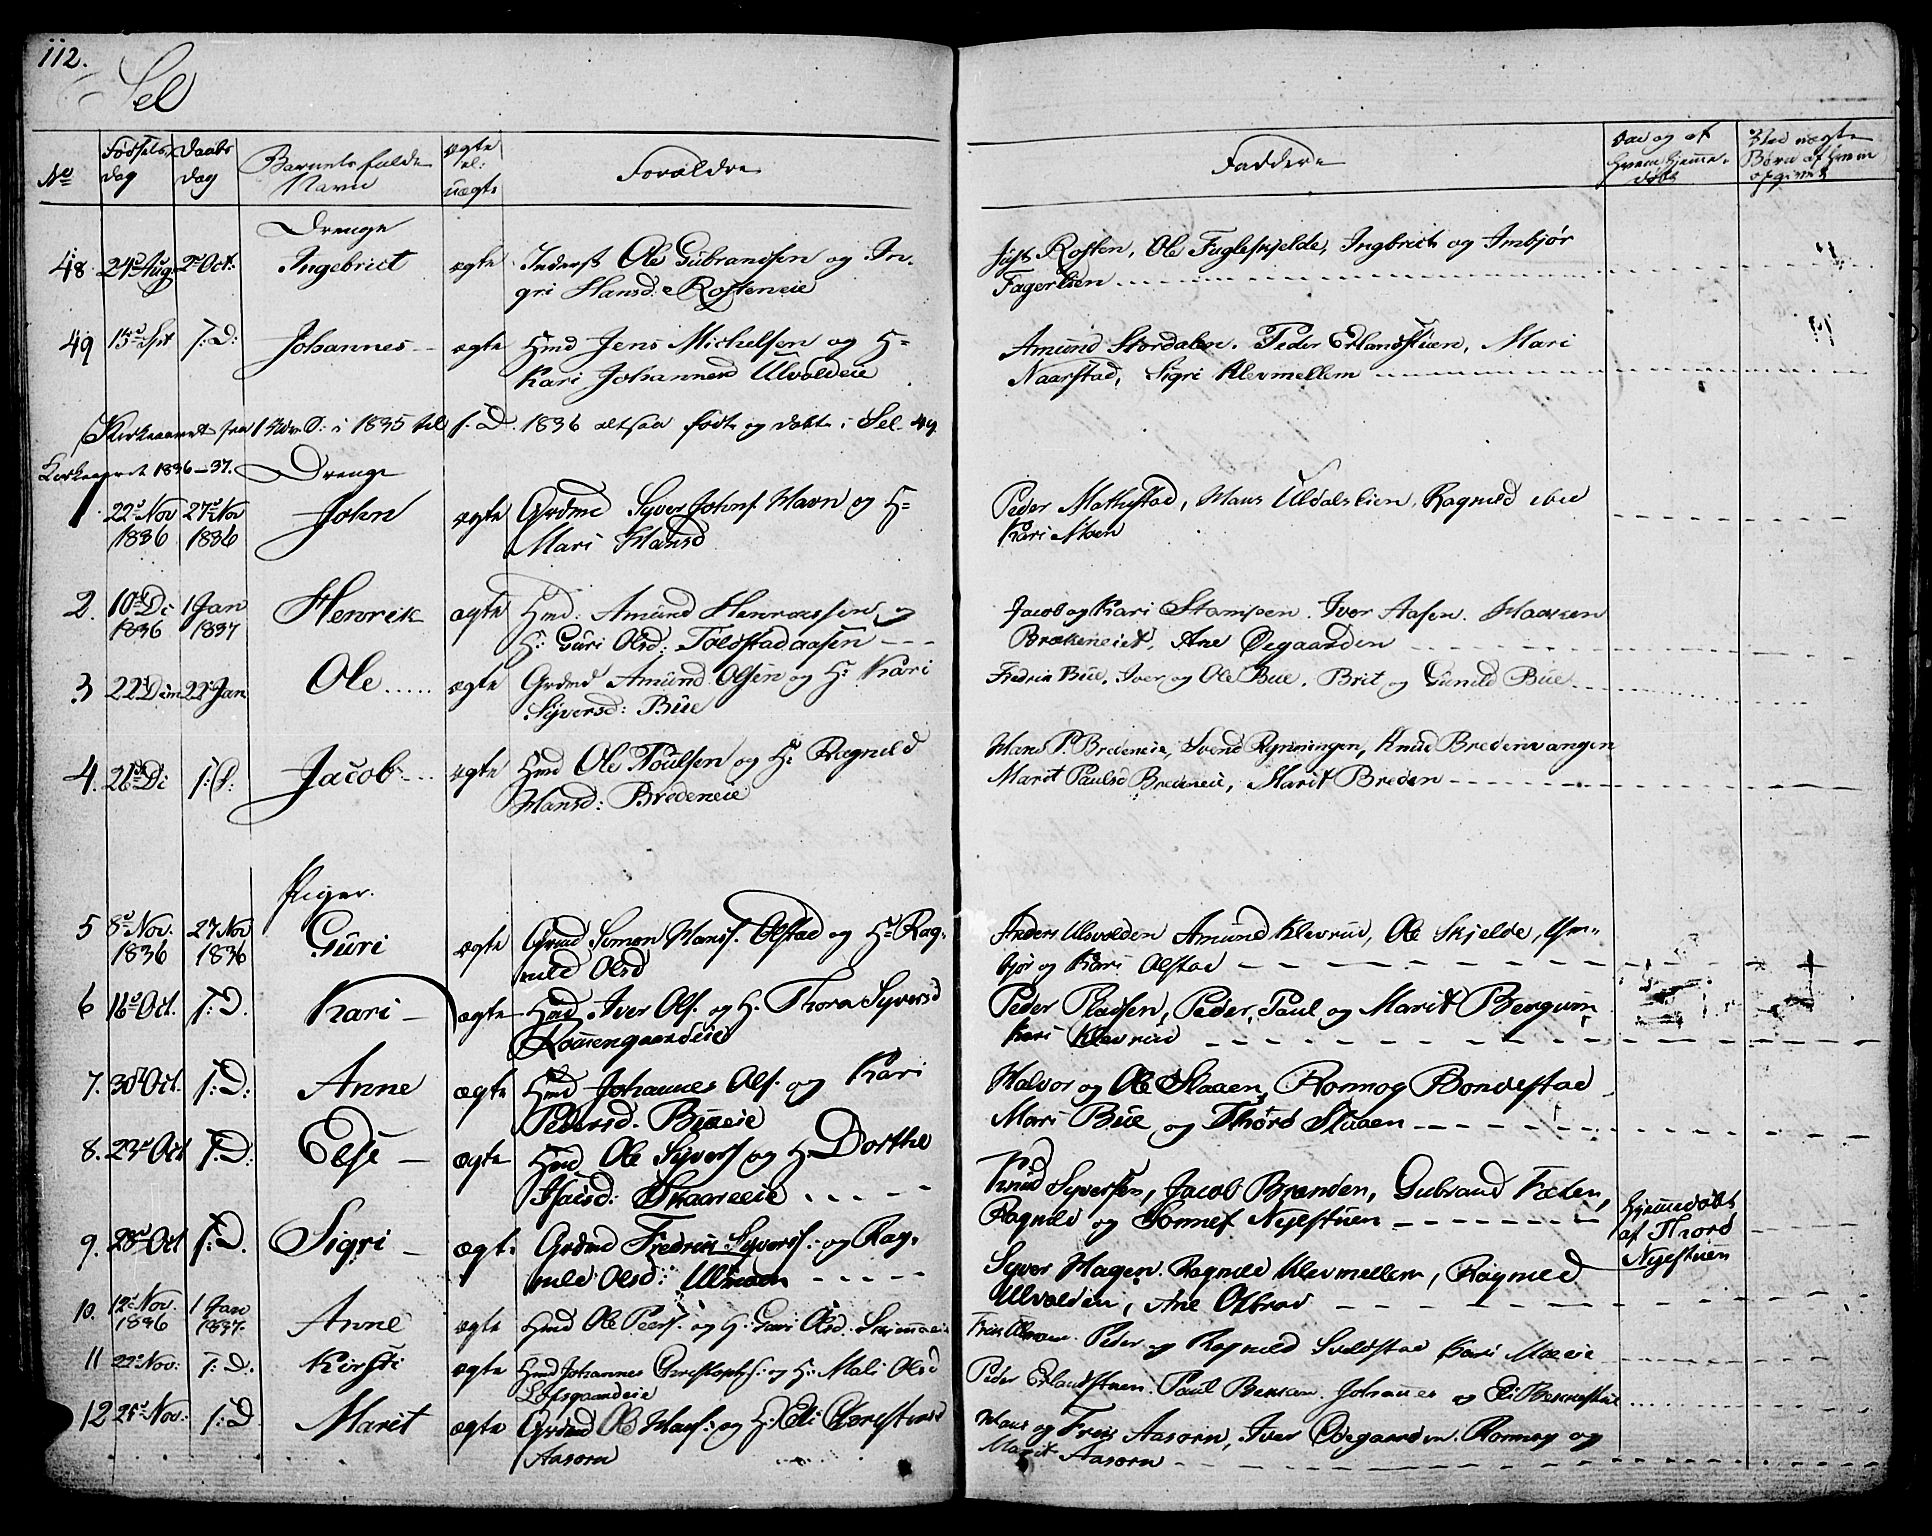 112.
Sel
No Fødsels dag Daabs dag Barnets fulde Navn ægte el: uægte Forældre Faddere
Naar og af Hvem Hjemmedøbt
Ved uægte Børn af Hvem opgivet
Drenge
48. 24d Aug 2d Oct. Ingebrict ægte Inderst Ole Gubrandsen og In-
gri Hansd: Rosteneie
Rosten, Ole Fugleskjelde, Ingbrict og Imbjør
Fagerlien
49 15d Spt T: D: Johannes ægte Hmd Jens Michelsen og H=
Kari Johannesd Ulvoldeie
Amund Stordalen. Peder Erlandstuen, Mari
Naarstad, Sigri Klevmellem
Kirkeaaret fra 1 Adv. S: i 1835 til 1: D. 1836 altsaa født og døbt i Sel. 49
Kirkeaaret 1836-37. Drenge
1 22d Nov 1836 27d Nov 1836 John ægte Grdmd Syver Johns. Havn og H=
Mari Hansd
Peder Mathistad, Hans Uldalslien, Ragnild ibid
Kari Moen
2. 10d Dc 1836 1 Jan 1837 Henrik ægte Hmd: Amund Henricssen og
H: Guri Olsd: Toldstadaasen
Jacob og Kari Stampen. Iver Aasen.
Brækeneiet, Ane Øegaarden
3 22d Dcm 22d Jan Ole ægte Grdmd Amund Olsen og H: Kari
Syversd: Bue
Fredrik Bue, Iver og Ole Bue, Brit og Gunild Bue
4. 26d Dc T: D: Jacob ægte Hmd Ole Poulsen og H: Ragnild
Hansd: Bredeneie
Hans P. Bredeneie, Svend Rynningen, Knud Bredenvangen
Marit Paulsd Bredeneie, Marit Breden
Piger.
5 8d Nov. 1836 27 Nov 1836 Guri ægte Grdmd Simon Hanss. Olstad og H: Rag-
nild Olsd
Anders Ulvolden Amund Klevrud, Ole Skjelde, Ym-
bjør og Kari Olstad
6 16d Oct. T: D. Kari ægte Hmd Iver Ols. og H. Thora Syversd
Romengaardeie
Peder Pladsen, Peder, Paul og Marit Bergum
Kari Klevrud
7. 30d Oct. T: D: Anne ægte Hmd Johannes Ols. og Kari
Pedersd. Bueeie
Halvor og Ole Slaaen, Ronnog Bondestad
Mari Bue og Thore Slaaen
8. 23d Oct T: D: Else ægte Hmd Ole Syvers og H: Dorthe
Isaisd: Skaareeie
Knud Syversen, Jacob Brenden, Gubrand Foten,
Ragnild og Sonnef Nyestuen
Hjemmedøbt
af Thord
Nyestuen
9. 28d Oct T: D. Sigri ægte Grdmd Fredrik Syvers: og Rag-
nild Olsd: Ulmoen
Syver Hagen. Ragnild Klevmellem, Ragnild
Ulvolden, Ane Olstad
10. 12d Nov. 1836 1 Jan 1837. Anne ægte Hmd Ole Peers. og H. Guri Olsd.
Peder og Ragnild Kari Moeie
11 22d Nov: T: D. Kirsti ægte Hmd Johannes Christophs: og H: Mali Olsd
Løfsgaardeie
Peder Erlandstuen. Paul Johannes og Eli
12 21d Nov: T: D Marit ægte Grdmd Ole Hans: og H: Eli Christensd
Aasorn
Hans og Aasorn, Iver Øvegaarden. Ronnog og
Marit Aasorn